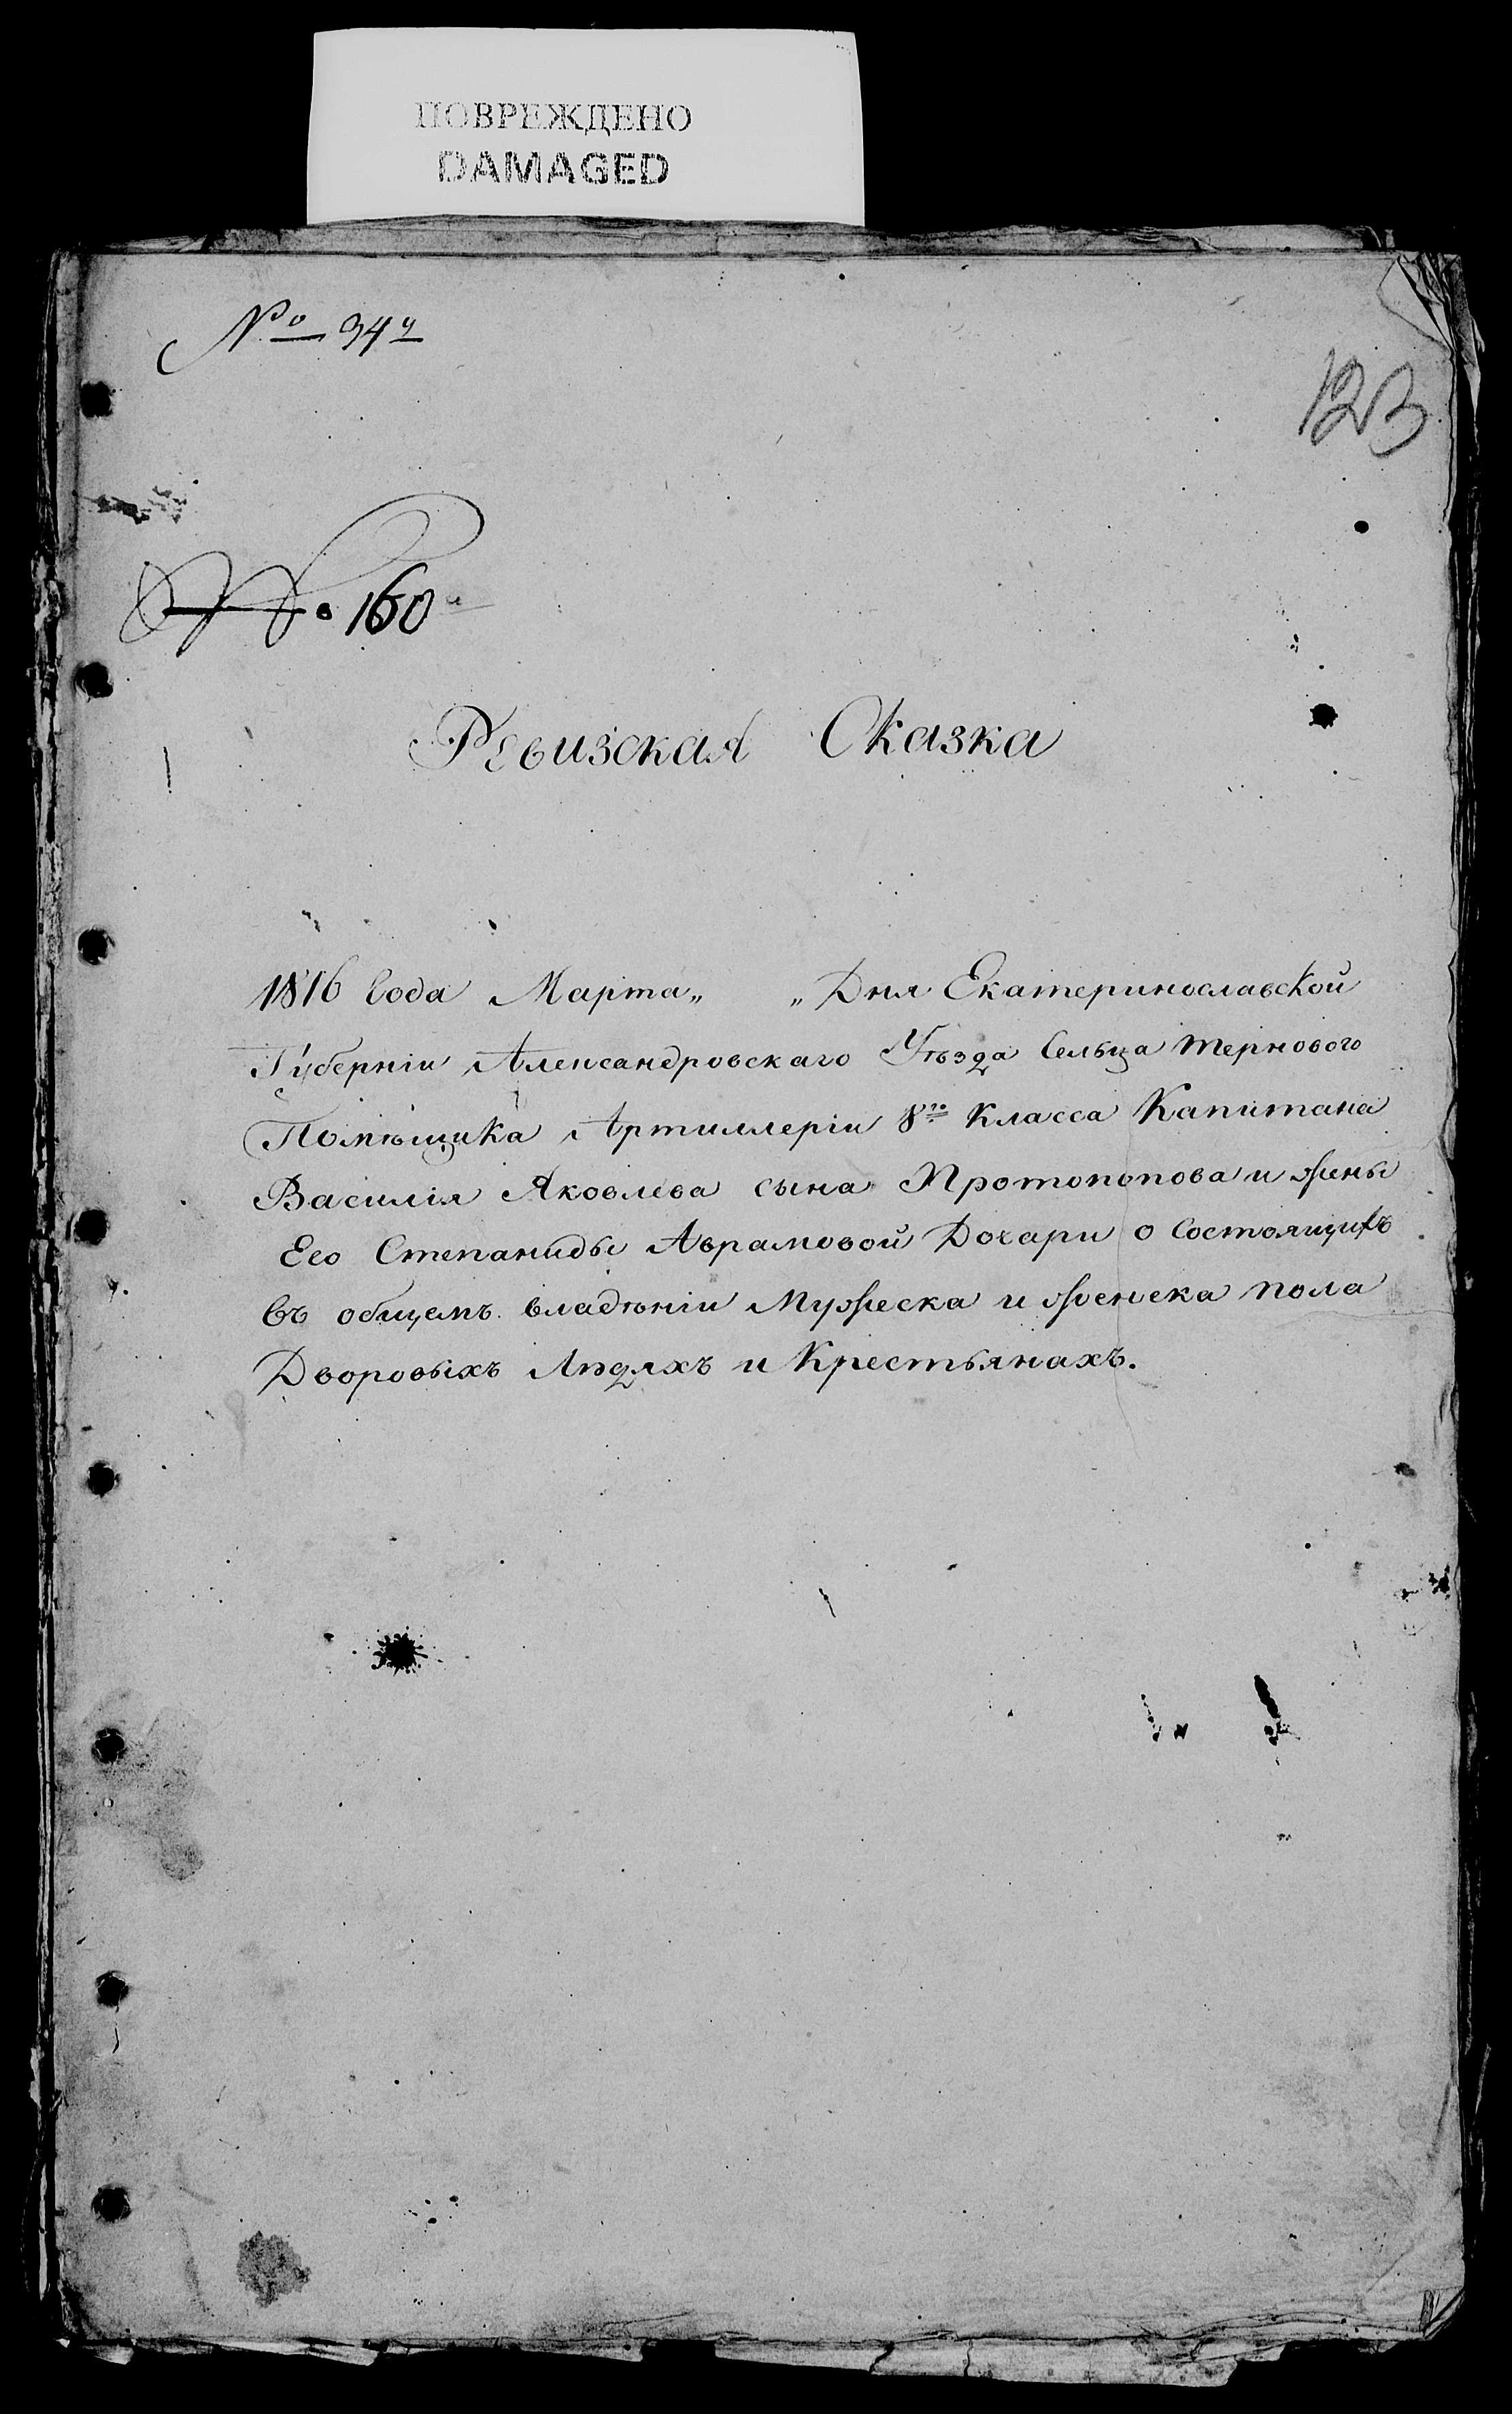 ПОВРЕЖДЕНО
DAMAGED
№ 94й
123
№ 160й
Ревизская Сказка
1816 Года Марта „ „ Дня Екатеринославской
Губерніи Александровскаго Уѣзда Сельца Тернового
Помѣщика Артиллеріи 8го Класса Капитана
Василія Яковлева сына Протопопова и жены
Его Степаниды Аврамовой Дочари о Состоящихъ
въ общемъ владѣніи Мужеска и женска пола
Дворовыхъ Людяхъ и Крестьянахъ.